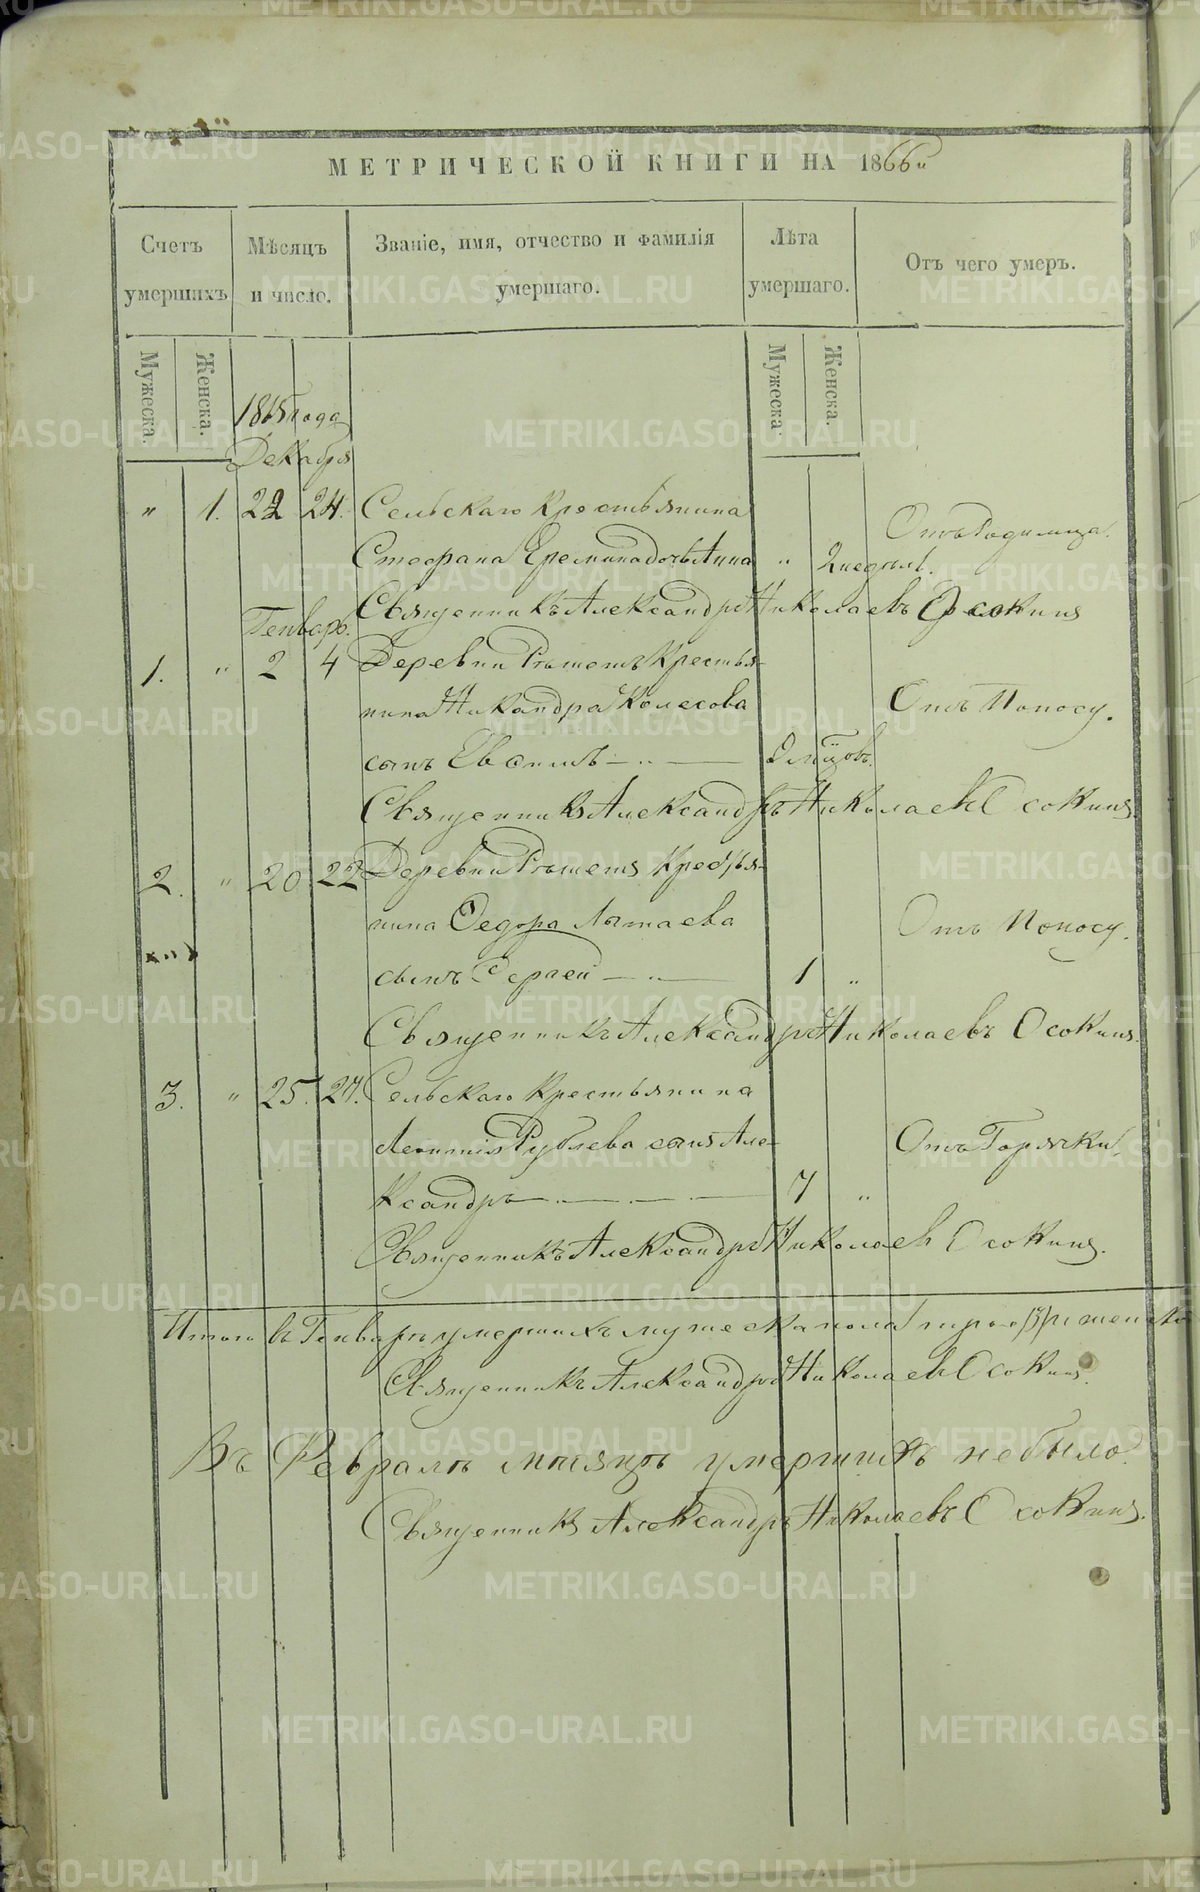 МЕТРИЧЕСКОЙ КНИГИ НА 1866й
Счетъ умершихъ
Мѣсяцъ и число.
Званіе, имя, отчество и фамилія умершаго.
Лѣта умершаго.
Отъ чего умеръ.
Мужеска. Женска. Мужеска Женска.
1865 года
Декабря
" 1. 22 24. Сельскаго Крестьянина
Отъ Родимца.
Стефана Еремина дочь Анна " 2 недѣль.
Священникъ Александръ Николаевъ Осокинъ
Генваря.
1. " 2 4 Деревни Рѣшетъ Крестья-
нина Никандра Колесова Отъ Поносу.
сынъ Евфимъ
Священникъ Александръ Николаевъ Осокинъ
2. " 20 22 Деревни Рѣшетъ Крестья-
нина Федора Латаева Отъ Поносу.
сынъ Сергей 1 "
Священникъ Александръ Николаевъ Осокинъ.
3. " 25. 27. Сельскаго Крестьянина
Леонтія Рублева сынъ Але- Отъ Горячки.
ксандръ 7 "
Священникъ Александръ Николаевъ Осокинъ.
Итого въ Генварѣ умершихъ мужеска пола трое
Священникъ Александръ Николаевъ Осокинъ.
Въ Февралѣ мѣсяцѣ умершихъ небыло.
Священникъ Александръ Николаевъ Осокинъ.
METRIKI.GASO-URAL.RU